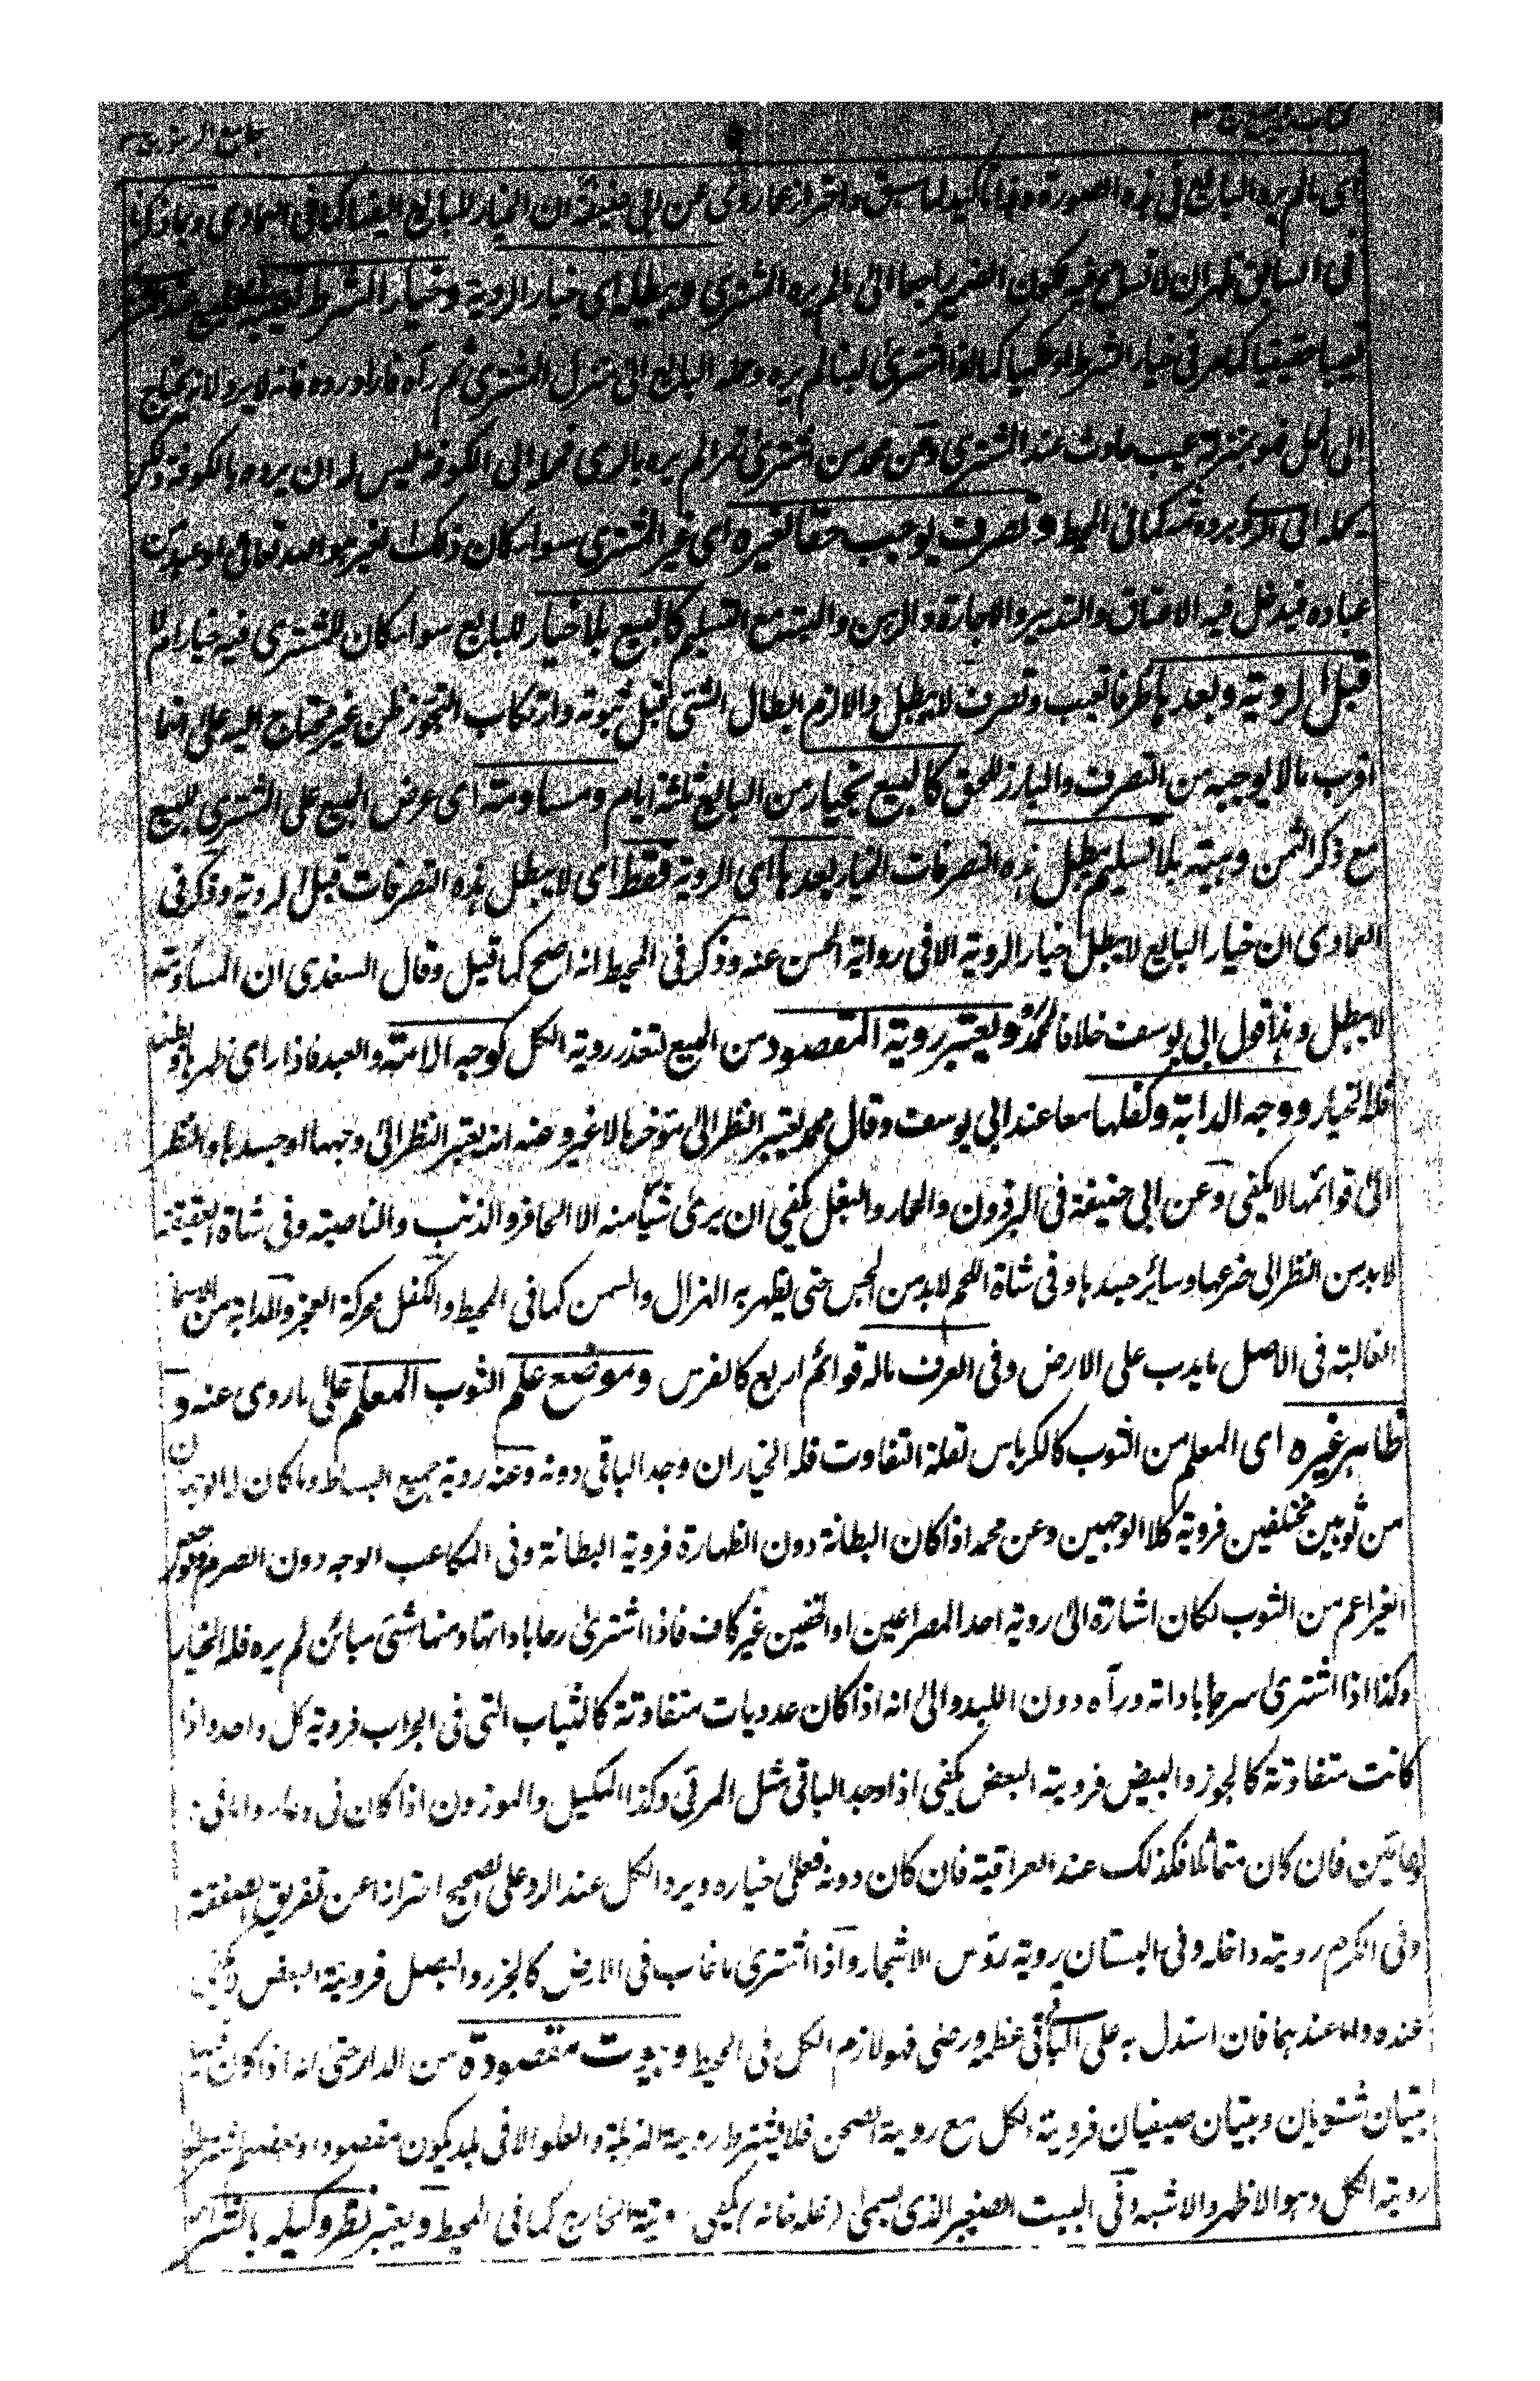 كتاب البيع ج ٣
جامع الرموز
اى مالم يره البائع فى هذه الصورة وهذا تاكيد لما سبق واحتراز عما روى عن ابى حنيفة ان الخيار للبائع ايضا كما فى العمادى وبما ذكرنا
فى السابق ظهر ان لا تسامح فيه لكون الضمير راجعا الى مالم يره المشترى ويبطله اى خيار الروية وخيار الشرط تعيبه
تعيبا حقيقيا كما مر فى خيار الشرط او حكميا كما اذا اشترى لبنا لم يره وحمله البائع الى منزل المشترى ثم رآه فاراد رده فانه لا يرد لانه يحتاج
الى الحمل فهو بمنزلة عيب حادث عند المشترى وعن محمد من اشترى لم يره بالرى فحمل الى الكوفة ليس له ان يرده بالكوفة
يحمله الى الرى ويرده ثمه كما فى المحيط وتصرف يوجب حقا لغيره اى غير المشترى سواء كان ذلك الغير هو الله تعالى او عبدا من
عباده فيدخل فيه الاعتاق والتدبير والاجارة والرهن والهبة مع التسليم كالبيع بلا خيار للبايع سواء كان للمشترى فيه خيار ام لا
قبل الروية وبعدها ظرف تعيب وتصرف لا يبطل والا لزم ابطال الشئ قبل ثبوته وارتكاب التجوز ظن غير محتاج اليه على انها
اقرب مالا يوجبه من التصرف والبارز للحق كالبيع بخيار من البايع ثلثة ايام ومساومته اى عرض المبيع على المشترى للبيع
مع ذكر الثمن وهبته بلا تسليم يبطل هذه التصرفات الخيار بعدها اى الروية فقط اى لا يبطل هذه التصرفات قبل الروية وذكر فى
العمادى ان خيار البايع لا يبطل خيار الروية الا فى رواية الحسن عنه وذكر فى المحيط انه اصح كما قيل وقال السغدى ان المساومة
لا يبطل وهذا قول ابى يوسف خلافا لمحمد ويعتبر روية المقصود من المبيع لتعذر روية الكل كوجه الامة والعبد فاذا راى ظهرها وبطنها
فلا الخيار ووجه الدابة وكفلها معا عند ابى يوسف وقال محمد يعتبر النظر الى مؤخرها لا غير وعنه انه يعتبر النظر الى وجهها او جسدها والنظر
الى قوائمها لا يكفى وعن ابى حنيفة فى البرذون والحمار والبغل يكفى ان يرى شيأ منه الا الحافر والذنب والناصية وفى شاة العقيقة
لا بد من النظر الى ضرعها وسائر جسدها وفى شاة اللحم لا بد من الجس حتى يظهر به الهزال والسمن كما فى المحيط والكفل محركة العجز والدابة من الاسماء
الغالبة فى الاصل ما يدب على الارض وفى العرف ماله قوائم اربع كالفرس وموضع علم الثوب المعلم على ما روى عنه و
ظاهر غيره اى المعلم من الثوب كالكرباس لقلة التفاوت فله الخيار ان وجد الباقى دونه وعنه روية جميع البساط وما كان له الوجهان
من ثوبين مختلفين فروية كلا الوجهين وعن محمد اذا كان البطانة دون الظهارة فروية البطانة وفى المكاعب الوجه دون الصرم
الغير اعم من الثوب لكان اشارة الى روية احد المصراعين او الخفين غير كاف فاذا اشترى رحا باداتها ومنها شئ مبائن لم يره فله الخيار
وكذا اذا اشترى سرجا باداته ورآه دون اللبد والى انه اذا كان عدديات متفاوتة كالثياب التى فى الجراب فروية كل واحد واذا
كانت متفاوتة كالجوز والبيض فروية البعض يكفى اذا وجد الباقى مثل المرئى وكذا المكيل والموزون اذا كان فى وعاء واما فى
وعائين فان كان متماثلا فكذلك عند العراقية فان كان دونه فعلى خياره ويرد الكل عند الرد على الصحيح احترازا عن تفريق الصفقة
وفى الكرم روية داخله وفى البستان روية رؤس الاشجار واذا اشترى ما غاب فى الارض كالجزر والبصل فروية البعض لا يكفى
عنده واما عندهما فان استدل به على الباقى عظم ورضى فهو لازم الكل فى المحيط وبيوت مقصودة من الدار حتى انه اذا كون فيها
بيتان شتويان وبيتان صيفيان فروية الكل مع روية الصحن فلا يشترط روية المزبلة والعلو الا فى بلد يكون مقصودا وبعضهم اشترطوا
روية الكل وهو الاظهر والاشبه وفى البيت الصغير الذى يسمى (غله خانه) يكفى روية الخارج كما فى المحيط ويعتبر نظر وكيله بالشراء